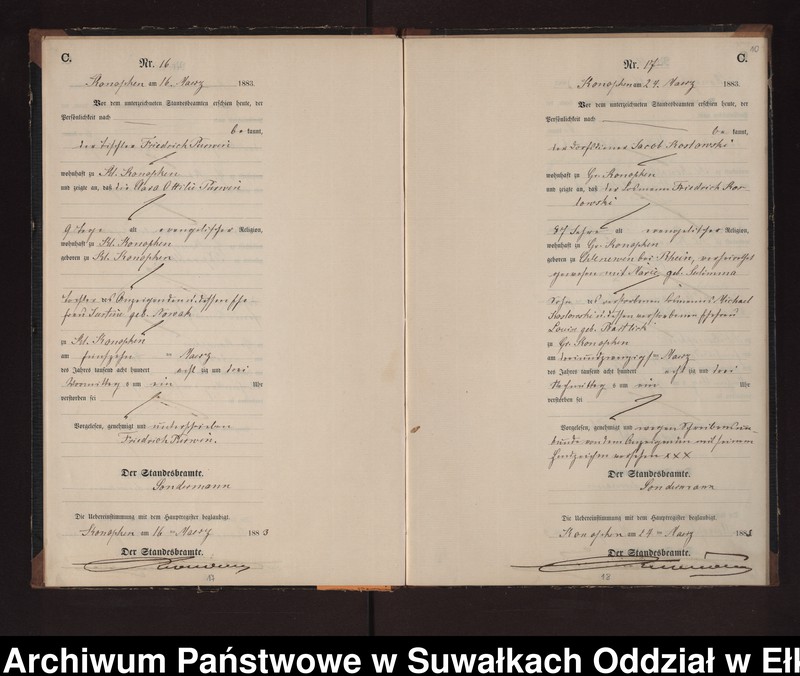 C.
Nr. 16
Konopken am 16. Maerz 1883.
Vor dem unterzeichneten Standesbeamten erschien heute, der
Persönlichkeit nach
be kannt,
der Friedrich
wohnhaft zu Kl. Konopken
und zeigte an, daß die Clara Ottilie
9 Tage alt evangelischer Religion,
wohnhaft zu Kl. Konopken
geboren zu Kl. Konopken
Tochter des Anzeigenden u. dessen Ehe
frau geb. Nowak
zu Kl. Konopken
am fünfzehn ten Maerz
des Jahres tausend acht hundert acht zig und drei
Vormittag s um ein Uhr
verstorben sei
Vorgelesen, genehmigt und unterschrieben
Friedrich
Der Standesbeamte.
Sondermann
Die Uebereinstimmung mit dem Hauptregister beglaubigt.
Konopken am 16 ten Maerz 1883
Der Standesbeamte.
17
10
C.
Nr. 17
Konopken am 24. Maerz 1883.
Vor dem unterzeichneten Standesbeamten erschien heute, der
Persönlichkeit nach
be kannt,
der Jacob Koslowski
wohnhaft zu Gr. Konopken
und zeigte an, daß der Losmann Friedrich Kos-
lowski
47 Jahre alt evangelischer Religion,
wohnhaft zu Gr. Konopken
geboren zu bei Rhein, verheirathet
gewesen mit Marie geb.
Sohn des verstorbenen Losmanns Michael
Koslowski u. dessen verstorbenen Ehefrau
Louise geb.
zu Gr. Konopken
am dreiundzwanzigsten Maerz
des Jahres tausend acht hundert acht zig und drei
Nachmittag s um ein Uhr
verstorben sei
Vorgelesen, genehmigt und wegen Schreibensun-
kunde von dem Anzeigenden mit seinem
Handzeichen versehen xxx
Der Standesbeamte.
Sondermann
Die Uebereinstimmung mit dem Hauptregister beglaubigt.
Konopken am 24 ten Maerz 1883
Der Standesbeamte.
18
Archiwum Państwowe w Suwałkach Oddział w Ełk